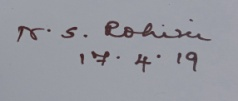 N. S. Rohini
17. 4. 19